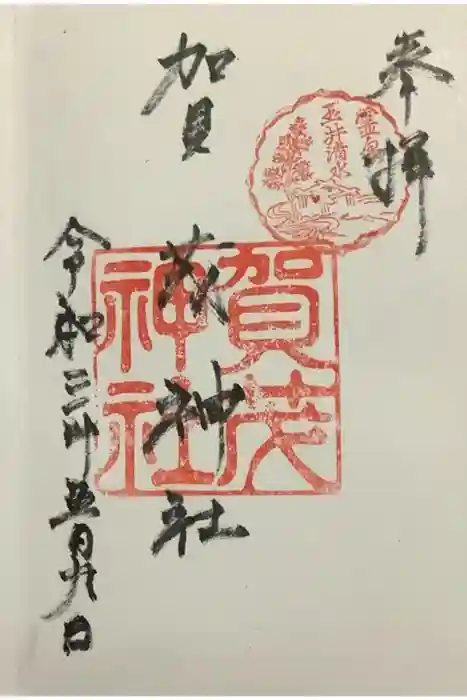 奉拝
霊泉
玉井清水
賀茂神社
賀茂
神社
令和三年五月 日